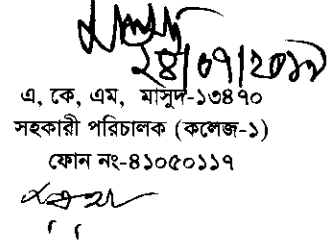 ২৪/০৭/২০১৯
এ, কে, এম, মাসুদ-১৩৪৭০
সহকারী পরিচালক (কলেজ-১)
ফোন নং-৪১০৫০১১৭